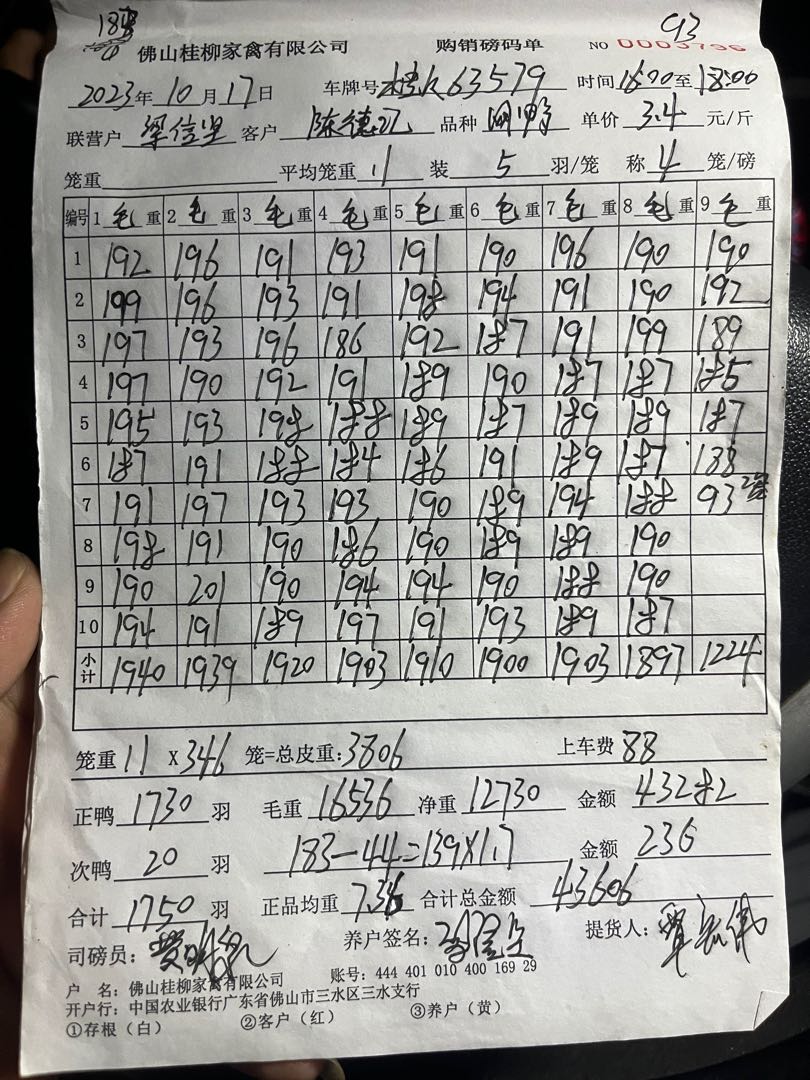 93
佛山桂柳家禽有限公司 购销磅码单 NO 0003796
2023年10月17日 车牌号 63579 时间 16:20至18:00
联营户 梁信坚 客户 陈德 品种 鸭 单价 3.4 元/斤
笼重 平均笼重 11 装 5 羽/笼 称 4 笼/磅
编号 1 毛 重 2 毛 重 3 毛 重 4 毛 重 5 毛 重 6 毛 重 7 毛 重 8 毛 重 9 毛 重
1 192 196 191 193 191 190 196 190 190
2 199 196 193 191 198 194 191 190 192
3 197 193 196 186 192 187 191 199 189
4 197 190 192 191 189 190 187 187 185
5 195 193 198 188 189 187 189 189 187
6 187 191 188 184 186 191 189 187 188
7 191 197 193 193 190 189 194 188 93 2笼
8 198 191 190 186 190 189 189 190
9 190 201 190 194 194 190 188 190
10 194 191 189 197 191 193 189 187
小计 1940 1939 1920 1903 1910 1900 1903 1897 1224
笼重 11 X 346 笼=总皮重:3806 上车费 88
正鸭 1730 羽 毛重 16536 净重 12730 金额 43282
次鸭 20 羽 183-44=139×1.7 金额 236
合计 1750 羽 正品均重 7.36 合计总金额 43606
司磅员: 养户签名: 提货人:
户 名: 佛山桂柳家禽有限公司 账号: 444 401 010 400 169 29
开户行: 中国农业银行广东省佛山市三水区三水支行
①存根(白) ②客户(红) ③养户(黄)